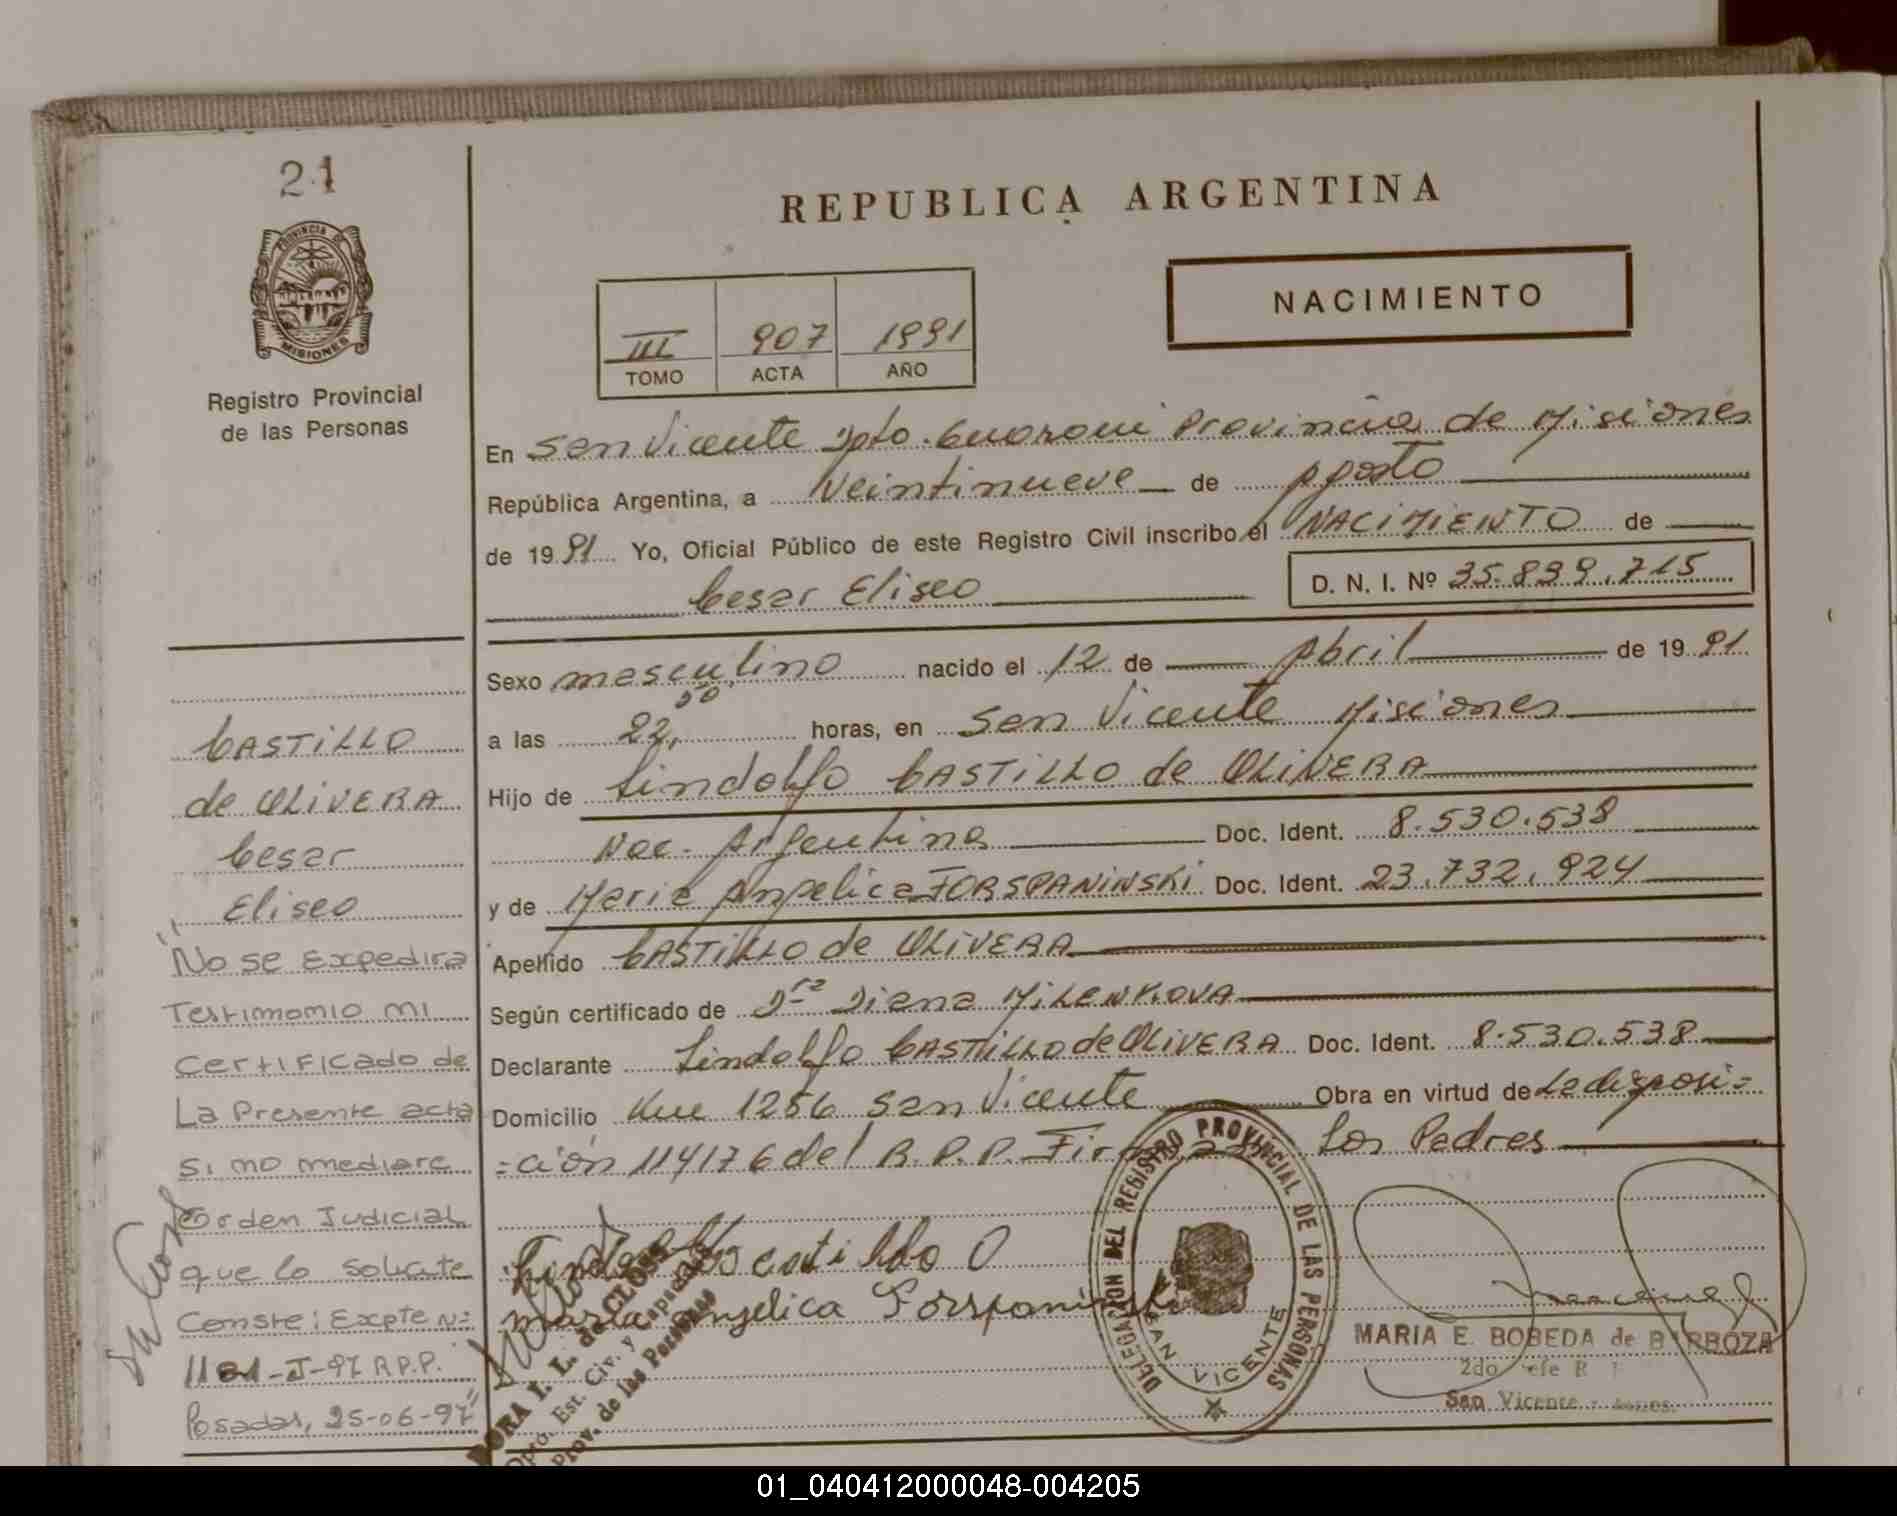 21
PROVINCIA DE
MISIONES
Registro Provincial
de las Personas
REPUBLICA ARGENTINA
NACIMIENTO
III 907 1991
TOMO ACTA AÑO
En San Vicente Dpto. Guarani Provincia de Misiones
República Argentina, a Veintinueve de Agosto
de 1991 Yo, Oficial Público de este Registro Civil inscribo el NACIMIENTO de
Cesar Eliseo D. N. I. Nº 35.839.715
Sexo masculino nacido el 12 de Abril de 1991
a las 22,50 horas, en San Vicente Misiones
Hijo de Lindolfo CASTILLO de OLIVERA
Nac. Argentina Doc. Ident. 8.530.538
y de Maria Angelica FORSPANINSKI Doc. Ident. 23.732.924
Apellido CASTILLO de OLIVERA
Según certificado de Dra Diana MILENKOVA
Declarante Lindolfo CASTILLO de OLIVERA Doc. Ident. 8.530.538
Domicilio Km 1256 San Vicente Obra en virtud de La disposi=
=ción 114176 del R.P.P. Firman Los Padres
castildo O
Maria Angelica Forspaninski
DELEGACION DEL REGISTRO PROVINCIAL DE LAS PERSONAS
SAN VICENTE
MARIA E. BOBEDA de BARBOZA
2do Jefe R
San Vicente
DORA I. L. de CLOSS
Dpto. Est. Civ. y Capacidad
Prov. de las Personas
CASTILLO
de OLIVERA
Cesar
Eliseo
"No se Expedira
Testimonio ni
Certificado de
La Presente acta
si no mediare
Orden Judicial
que lo solicite
Conste: Expte Nº
1181-J-97 R.P.P.
Posadas, 25-06-97"
01_040412000048-004205